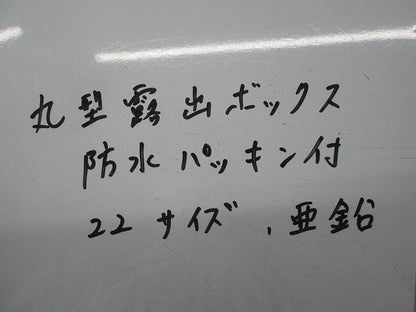 丸型露出ボックス
防水パッキン付
22サイズ、亜鉛